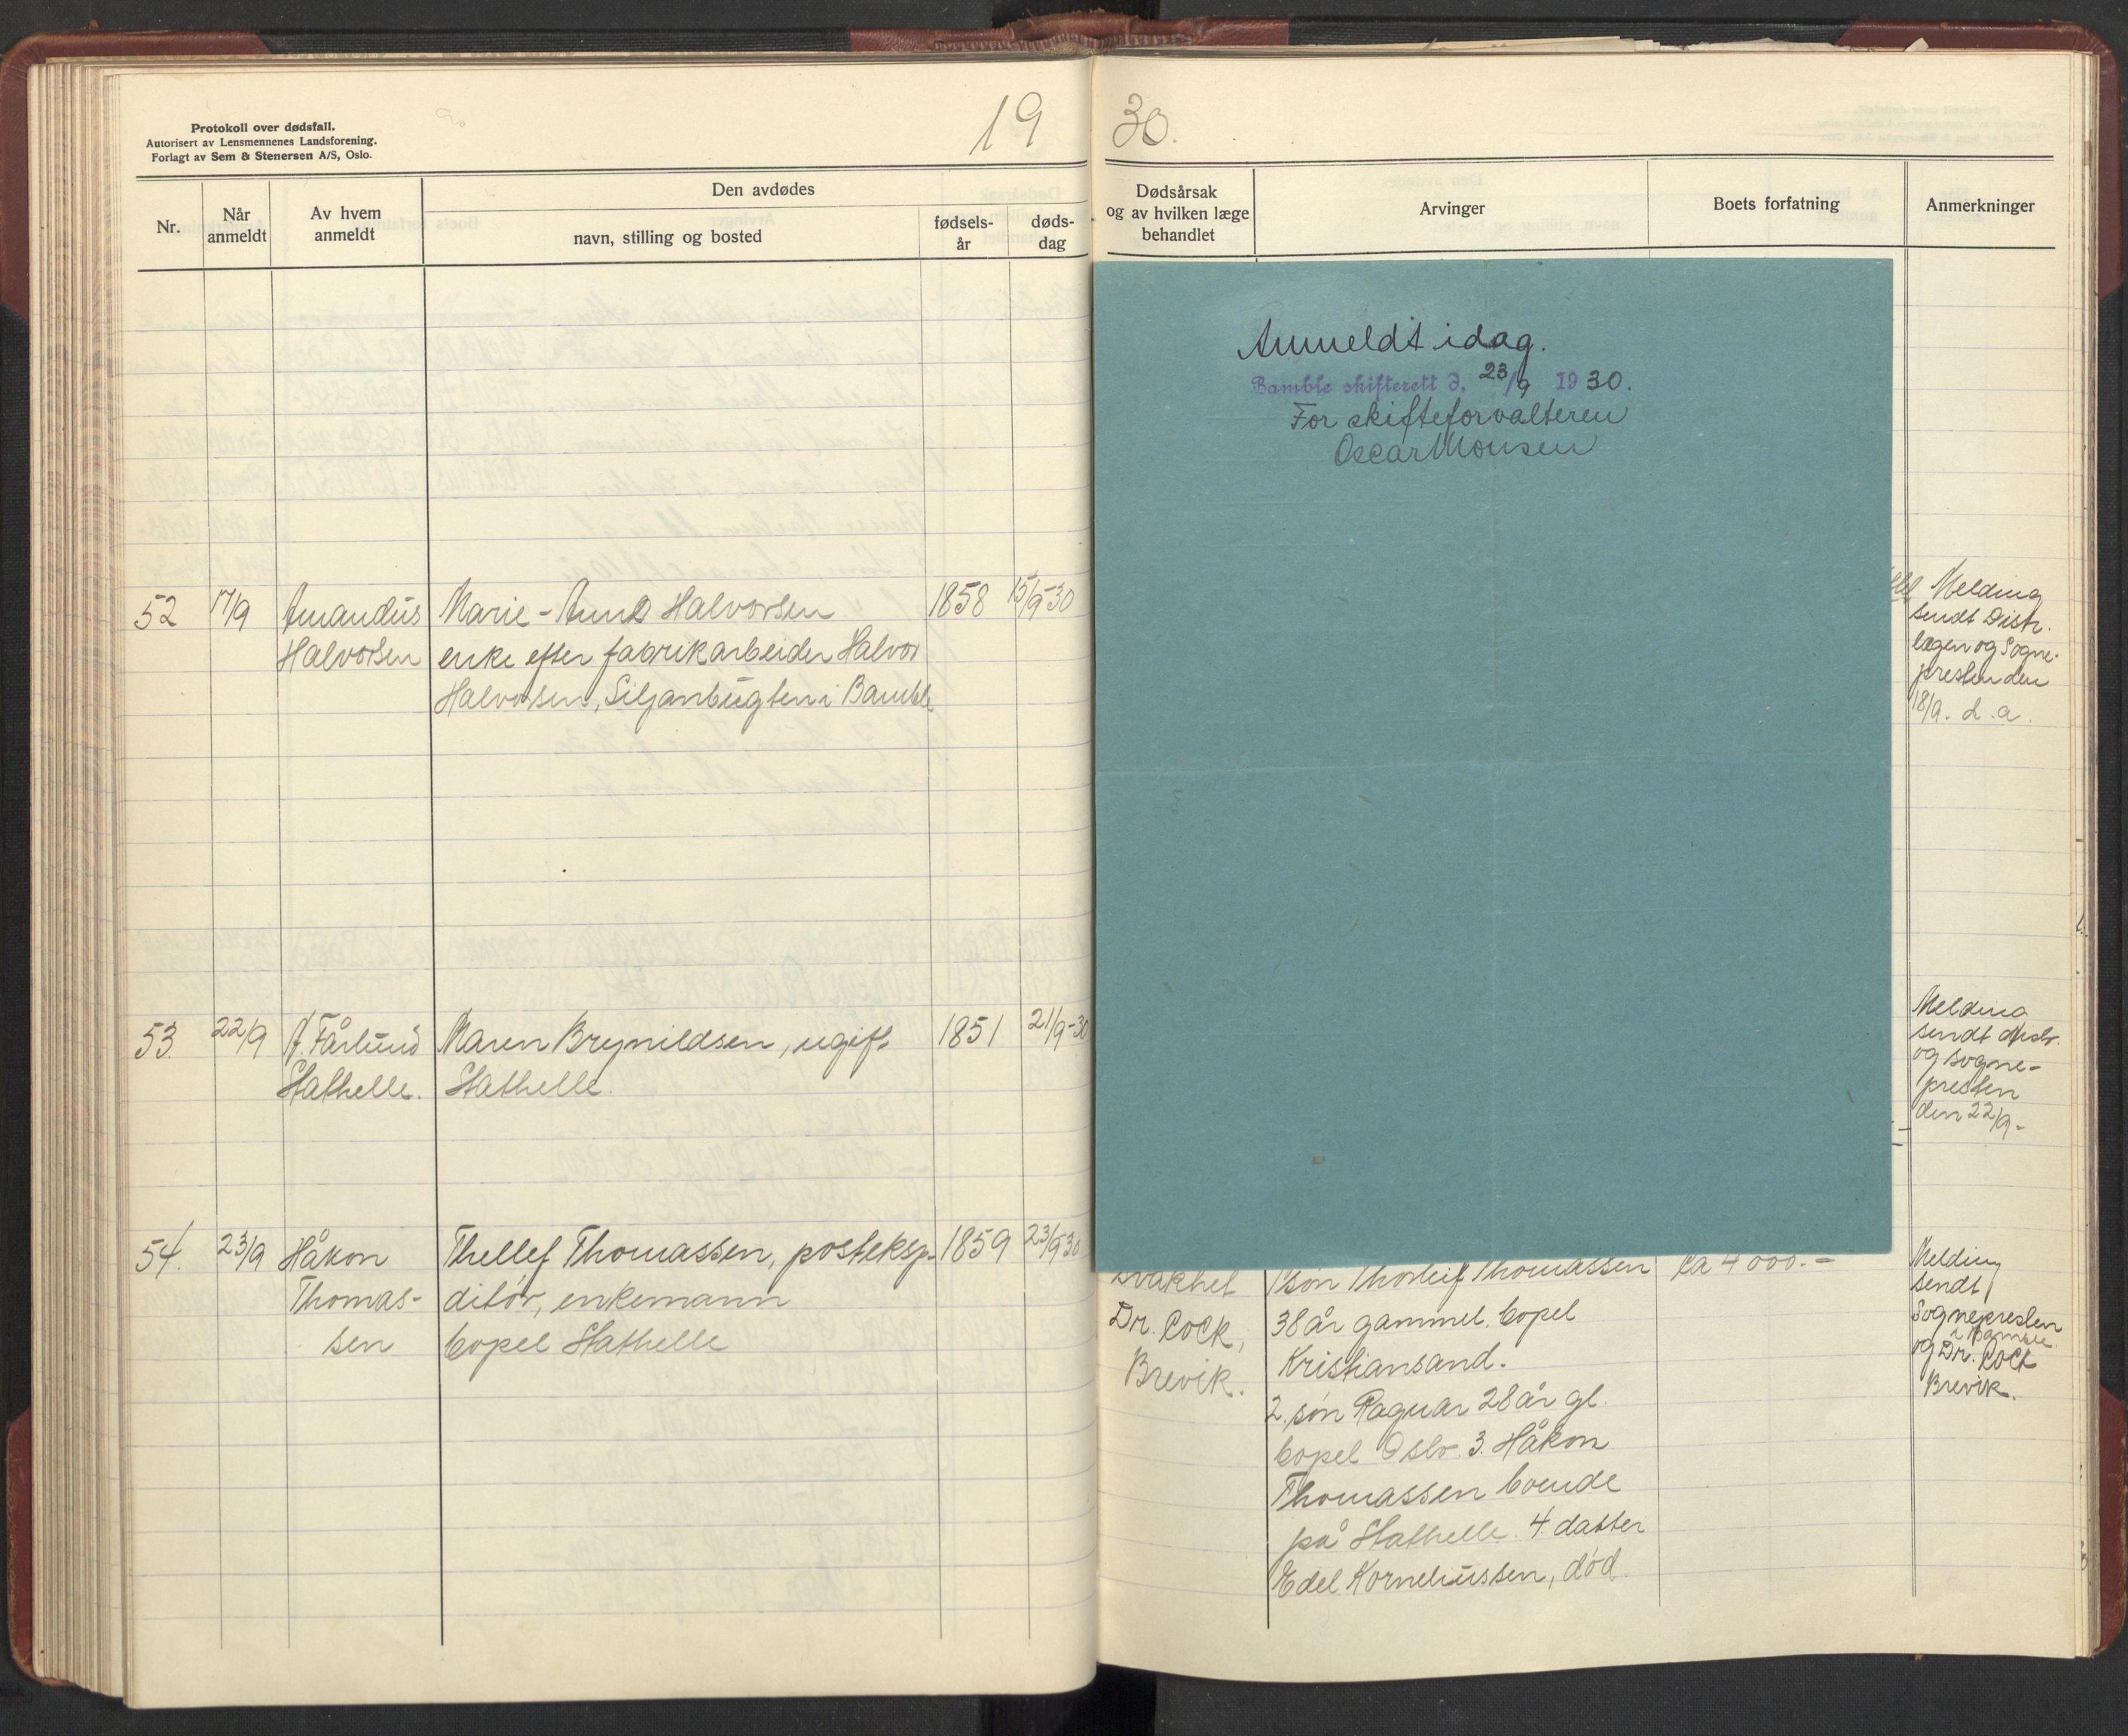 Protokoll over dødsfall.
Autorisert av Lensmennenes Landsforening.
Forlagt av Sem & Stenersen A/S, Oslo.
19 30.
Nr.
Når anmeldt
Av hvem anmeldt
Den avdødes
navn, stilling og bosted
fødsels-
år
døds-
dag
Dødsårsak
og av hvilken læge
behandlet
Arvinger
Boets forfatning
Anmerkninger
Anmeldt idag.
Bamble skifterett d. 23/9 1930.
For skifteforvalteren
Oscar Monsen
52 17/9 Amandus Marie-Anne Halvorsen 1858 15/9-30
Halvorsen enke efter fabrikarbeider Halvor
Halvorsen, Siljanbugten i Bamble
Melding
sendt Distr.
lægen og Sogne-
presten den
18/9. d.a.
53. 22/9 J. Fårlund Maren Brynildsen, ugift 1851 21/9-30
Stathelle. Stathelle.
Melding
sendt distr.
og sogne-
presten
den 22/9-
54. 23/9 Håkon Thellef Thomassen, posteksp- 1859 23/9 30
Thomas- ditør, enkemann
sen bopel Stathelle
svakhet
Dr. Cock,
Brevik.
søn Thorleif Thomassen
38 år gammel. bopel
Kristiansand.
2. søn Ragnar 28 år gl.
bopel Oslo 3. Håkon
Thomassen boende
på Stathelle 4. datter
Edel Korneliussen, død.
ca 4000.-
Melding
sendt
Sognepresten
i Bamble
og Dr. Cock
Brevik.